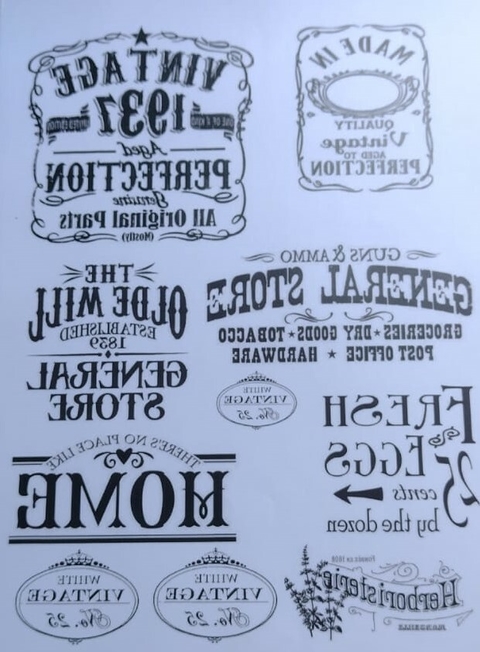 VINTAGE
1937
LIMITED EDITION ONE OF A KIND
Aged
PERFECTION
Genuine
All Original Parts
(Mostly)
MADE IN
QUALITY
Vintage
AGED TO
PERFECTION
THE
OLDE MILL
ESTABLISHED
1839
GENERAL
STORE
GUNS & AMMO
GENERAL STORE
GROCERIES★DRY GOODS★TOBACCO
POST OFFICE ★ HARDWARE
WHITE
VINTAGE
No. 25
FRESH
EGGS
25
cents
by the dozen
THERE'S NO PLACE LIKE
HOME
WHITE
VINTAGE
No. 25
WHITE
VINTAGE
No. 25
Herboristerie
MARSEILLE